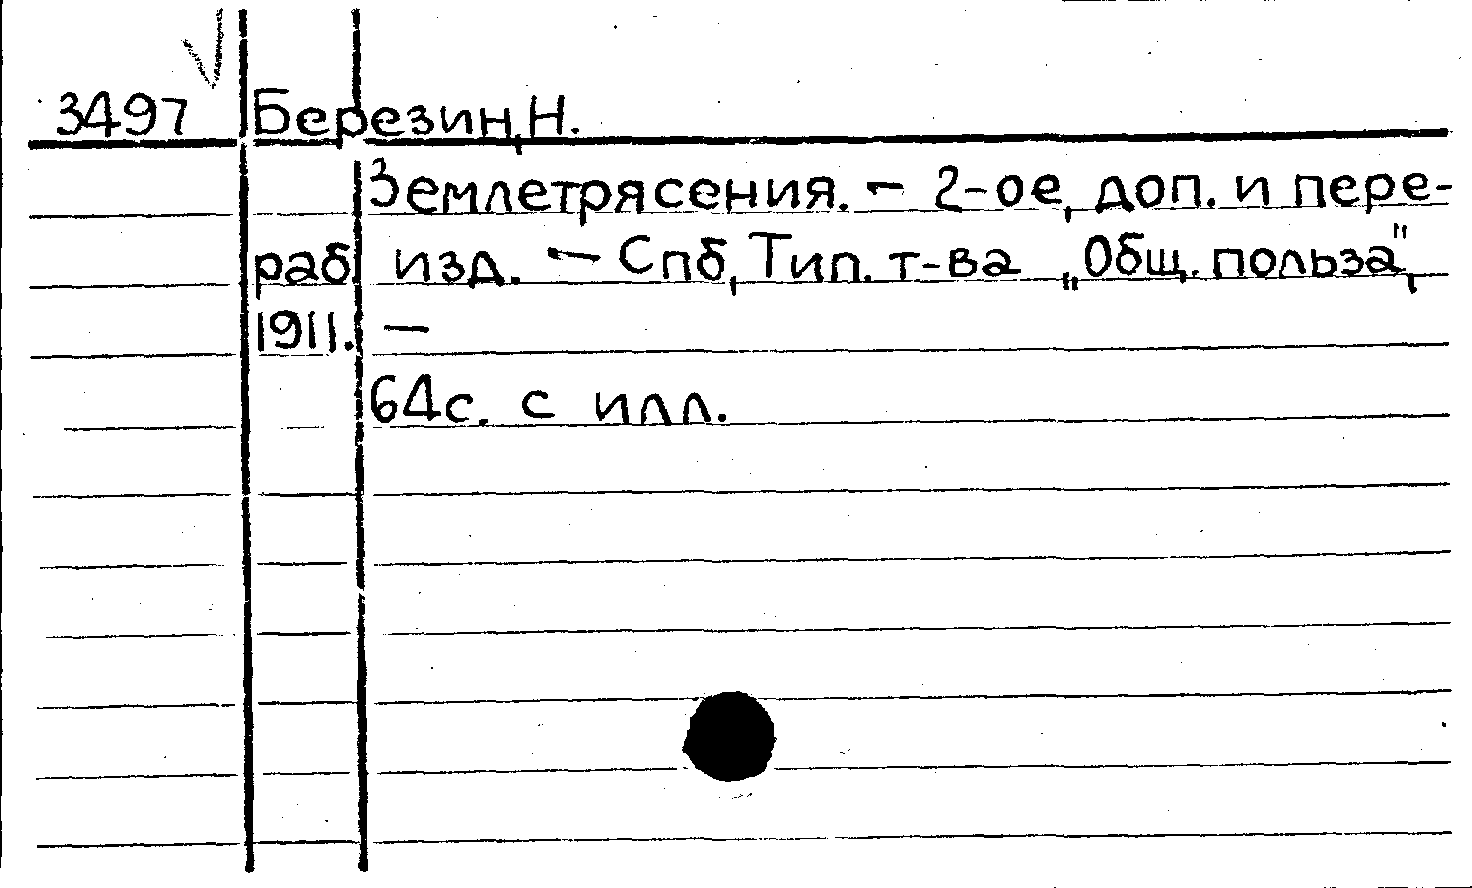 3497 Березин, Н.
Землетрясения. — 2-ое, доп. и пере-
раб. изд. — Спб, Тип. т-ва „Общ. польза",
1911. —
64с. с илл.